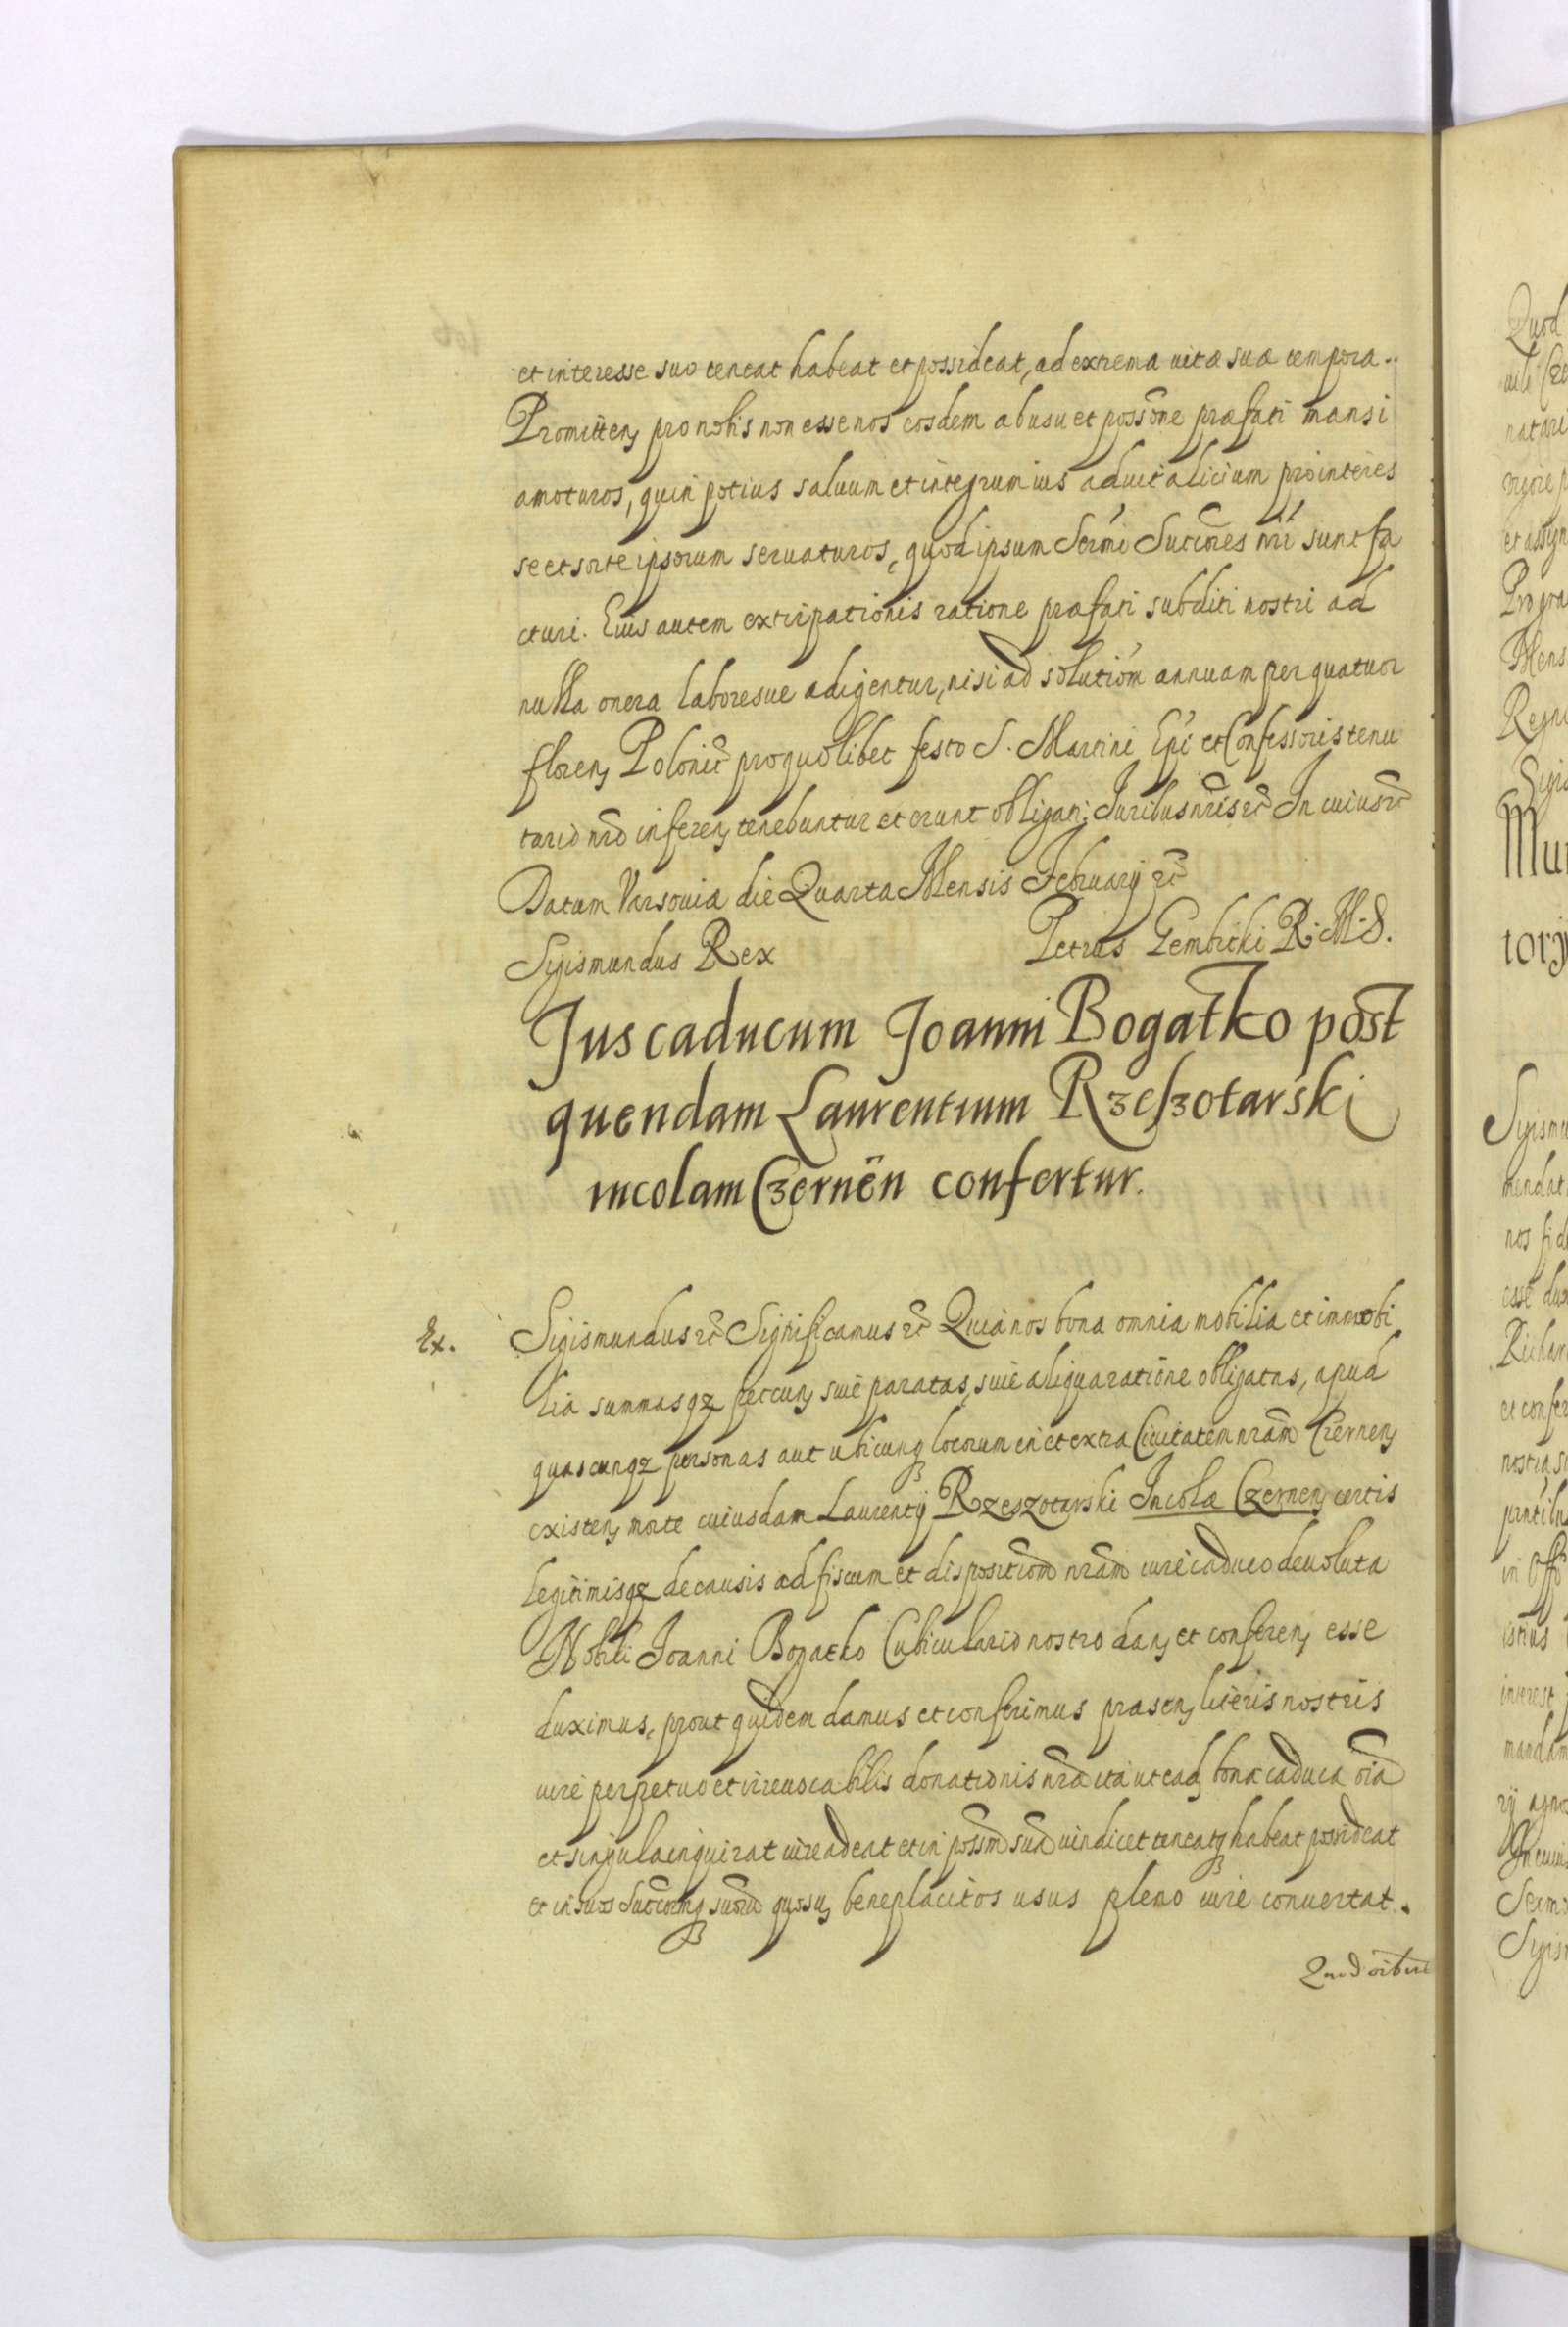 et interesse suo teneat habeat et possideat, ad extrema uitæ suæ tempora.
Promitten pro nobis non esse nos eosdem ab usu et possõne præfati mansi
amoturos, quin potius saluum et integrum ius aduitalicium pro interes
se et sorte ipsorum seruaturos, quod ipsum Sermi Succres nri sunt fa
cturi. Eius autem extirpationis ratione præfati subditi nostri ad
nulla onera laboresue adigentur, nisi ad solutiom annuam per quatuor
floren Polonic pro quolibet festo S. Martini Epi et Confessoris tenu
tario nro inferen tenebuntur et erunt obligati. Juribus nris etc In cuius etc
Datum Varsouiæ die Quarta Mensis February etc
Sigismundus Rex Petrus Gembicki R. M. S.
Jus caducum Joanni Bogatko post
quendam Laurentium Rzeszotarski
incolam Czernen confertur.
Ex. Sigismundus etc Significamus etc Quia nos bona omnia mobilia et immobi
lia summasqz peccun siue paratas, siue aliqua ratione obligatas, apud
quascunqz personas aut ubicunq locorum in et extra Ciuitatem nram Czernen
existen morte cuiusdam Laurentij Rzeszotarski Incolæ Czernen certis
legitimisqz de causis ad fiscum et dispositiom nram iure caduco deuoluta
Nobili Joanni Bogatko Cubiculario nostro dan et conferen esse
duximus, prout quidem damus et conferimus præsen literis nostris
iure perpetuo et irreuocabilis donationis nræ ita ut ead bona caduca oia
et singula inquirat iure adeat et in possm sua uindicet teneatq habeat possideat
et in suos Succorumq suoru quosuis beneplacitos usus pleno iure conuertat.
Quod oibus